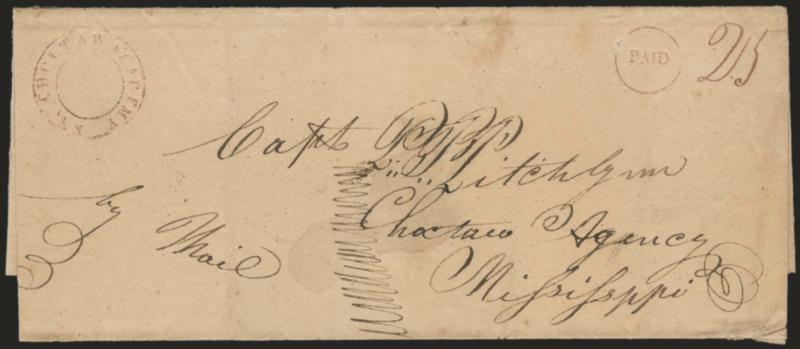 CHOCTAW ACADEMY KY.
PAID
25
Capt P. P. Pitchlynn
Choctaw Agency
Mississppi
by Mail